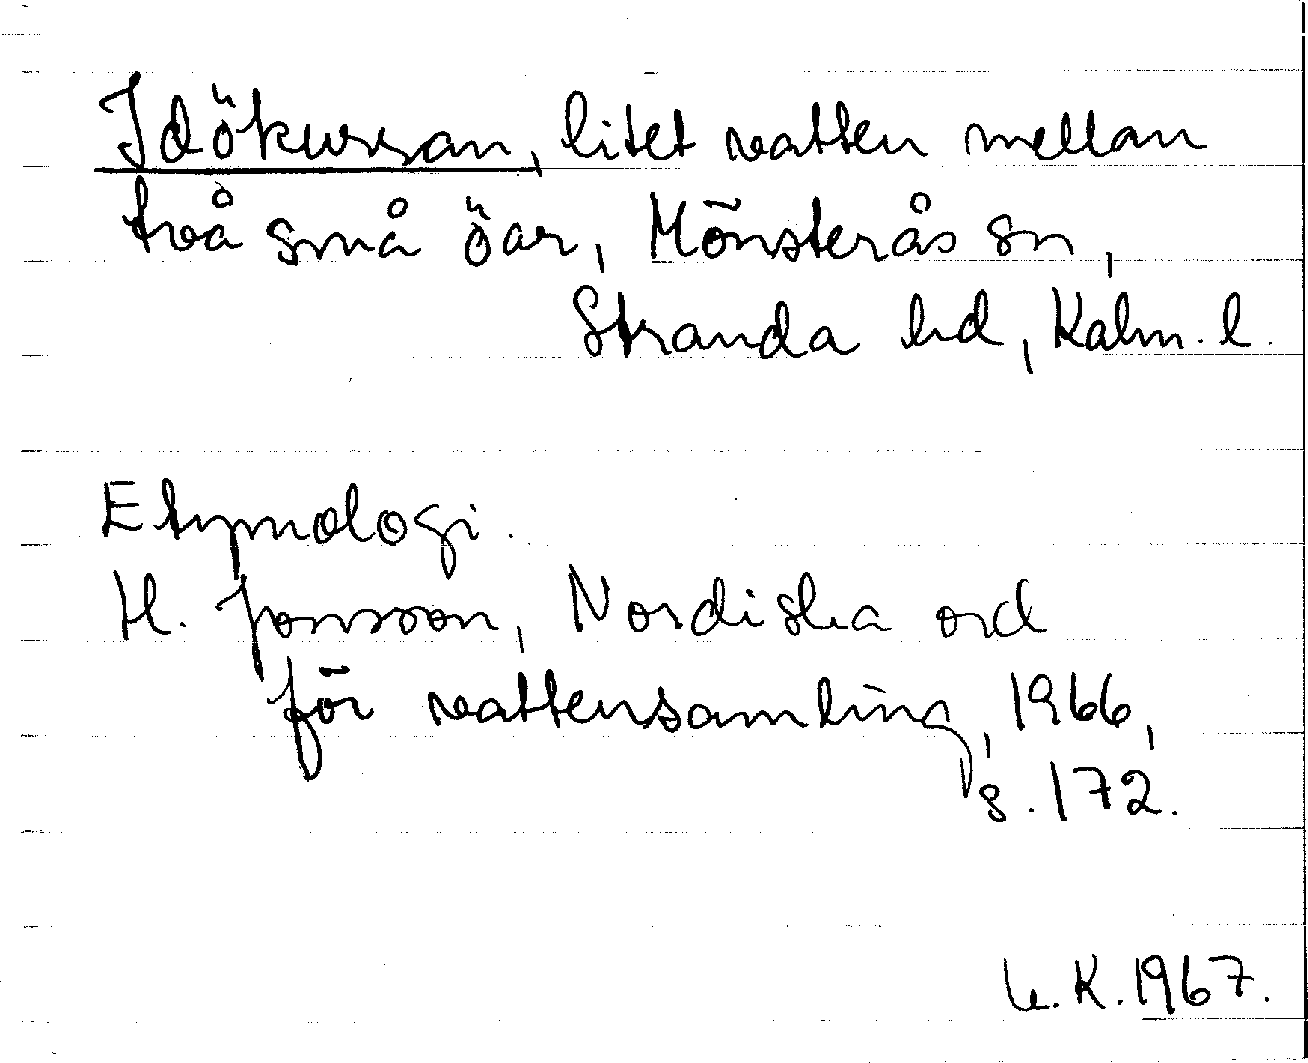 Idökurran, litet vatten mellan
två små öar, Mönsterås sn,
Stranda hd, Kalm. l.
Etymologi.
H. Jonsson, Nordiska ord
för vattensamling, 1966,
s. 172.
K. 1967.